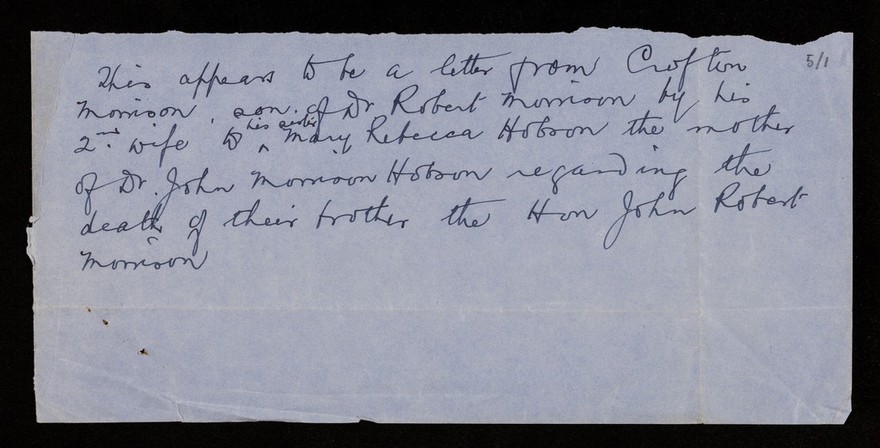 5/1
This appears to be a letter from Crofton
Morrison, son of Dr Robert Morrison by his
2nd. wife to ^his sister Mary Rebecca Hobson the mother
of Dr. John Morrison Hobson regarding the
death of their brother the Hon John Robert
Morrison